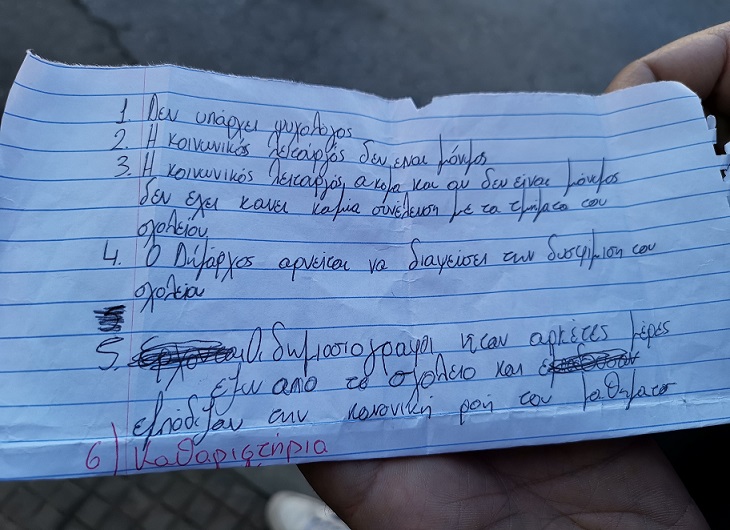 1. Δεν υπάρχει ψυχολόγος
2. Η κοινωνικός λειτουργός δεν ειναι μόνιμος
3. Η κοινωνικός λειτουργός, ακομα και αν δεν ειναι μόνιμος
δεν εχει κανει καμια συνέλευση με τα τμηματα του
σχολείου
4. Ο Δήμαρχος αρνειται να διαψεισει την δυσφιμιση του
σχολειου
5. Οι δημοσιογραφοι ηταν αρκετες μέρες
εξω απο το σχολειο και
εμποδιζαν την κανονική ροή του μαθηματος
6) Καθαριστήρια